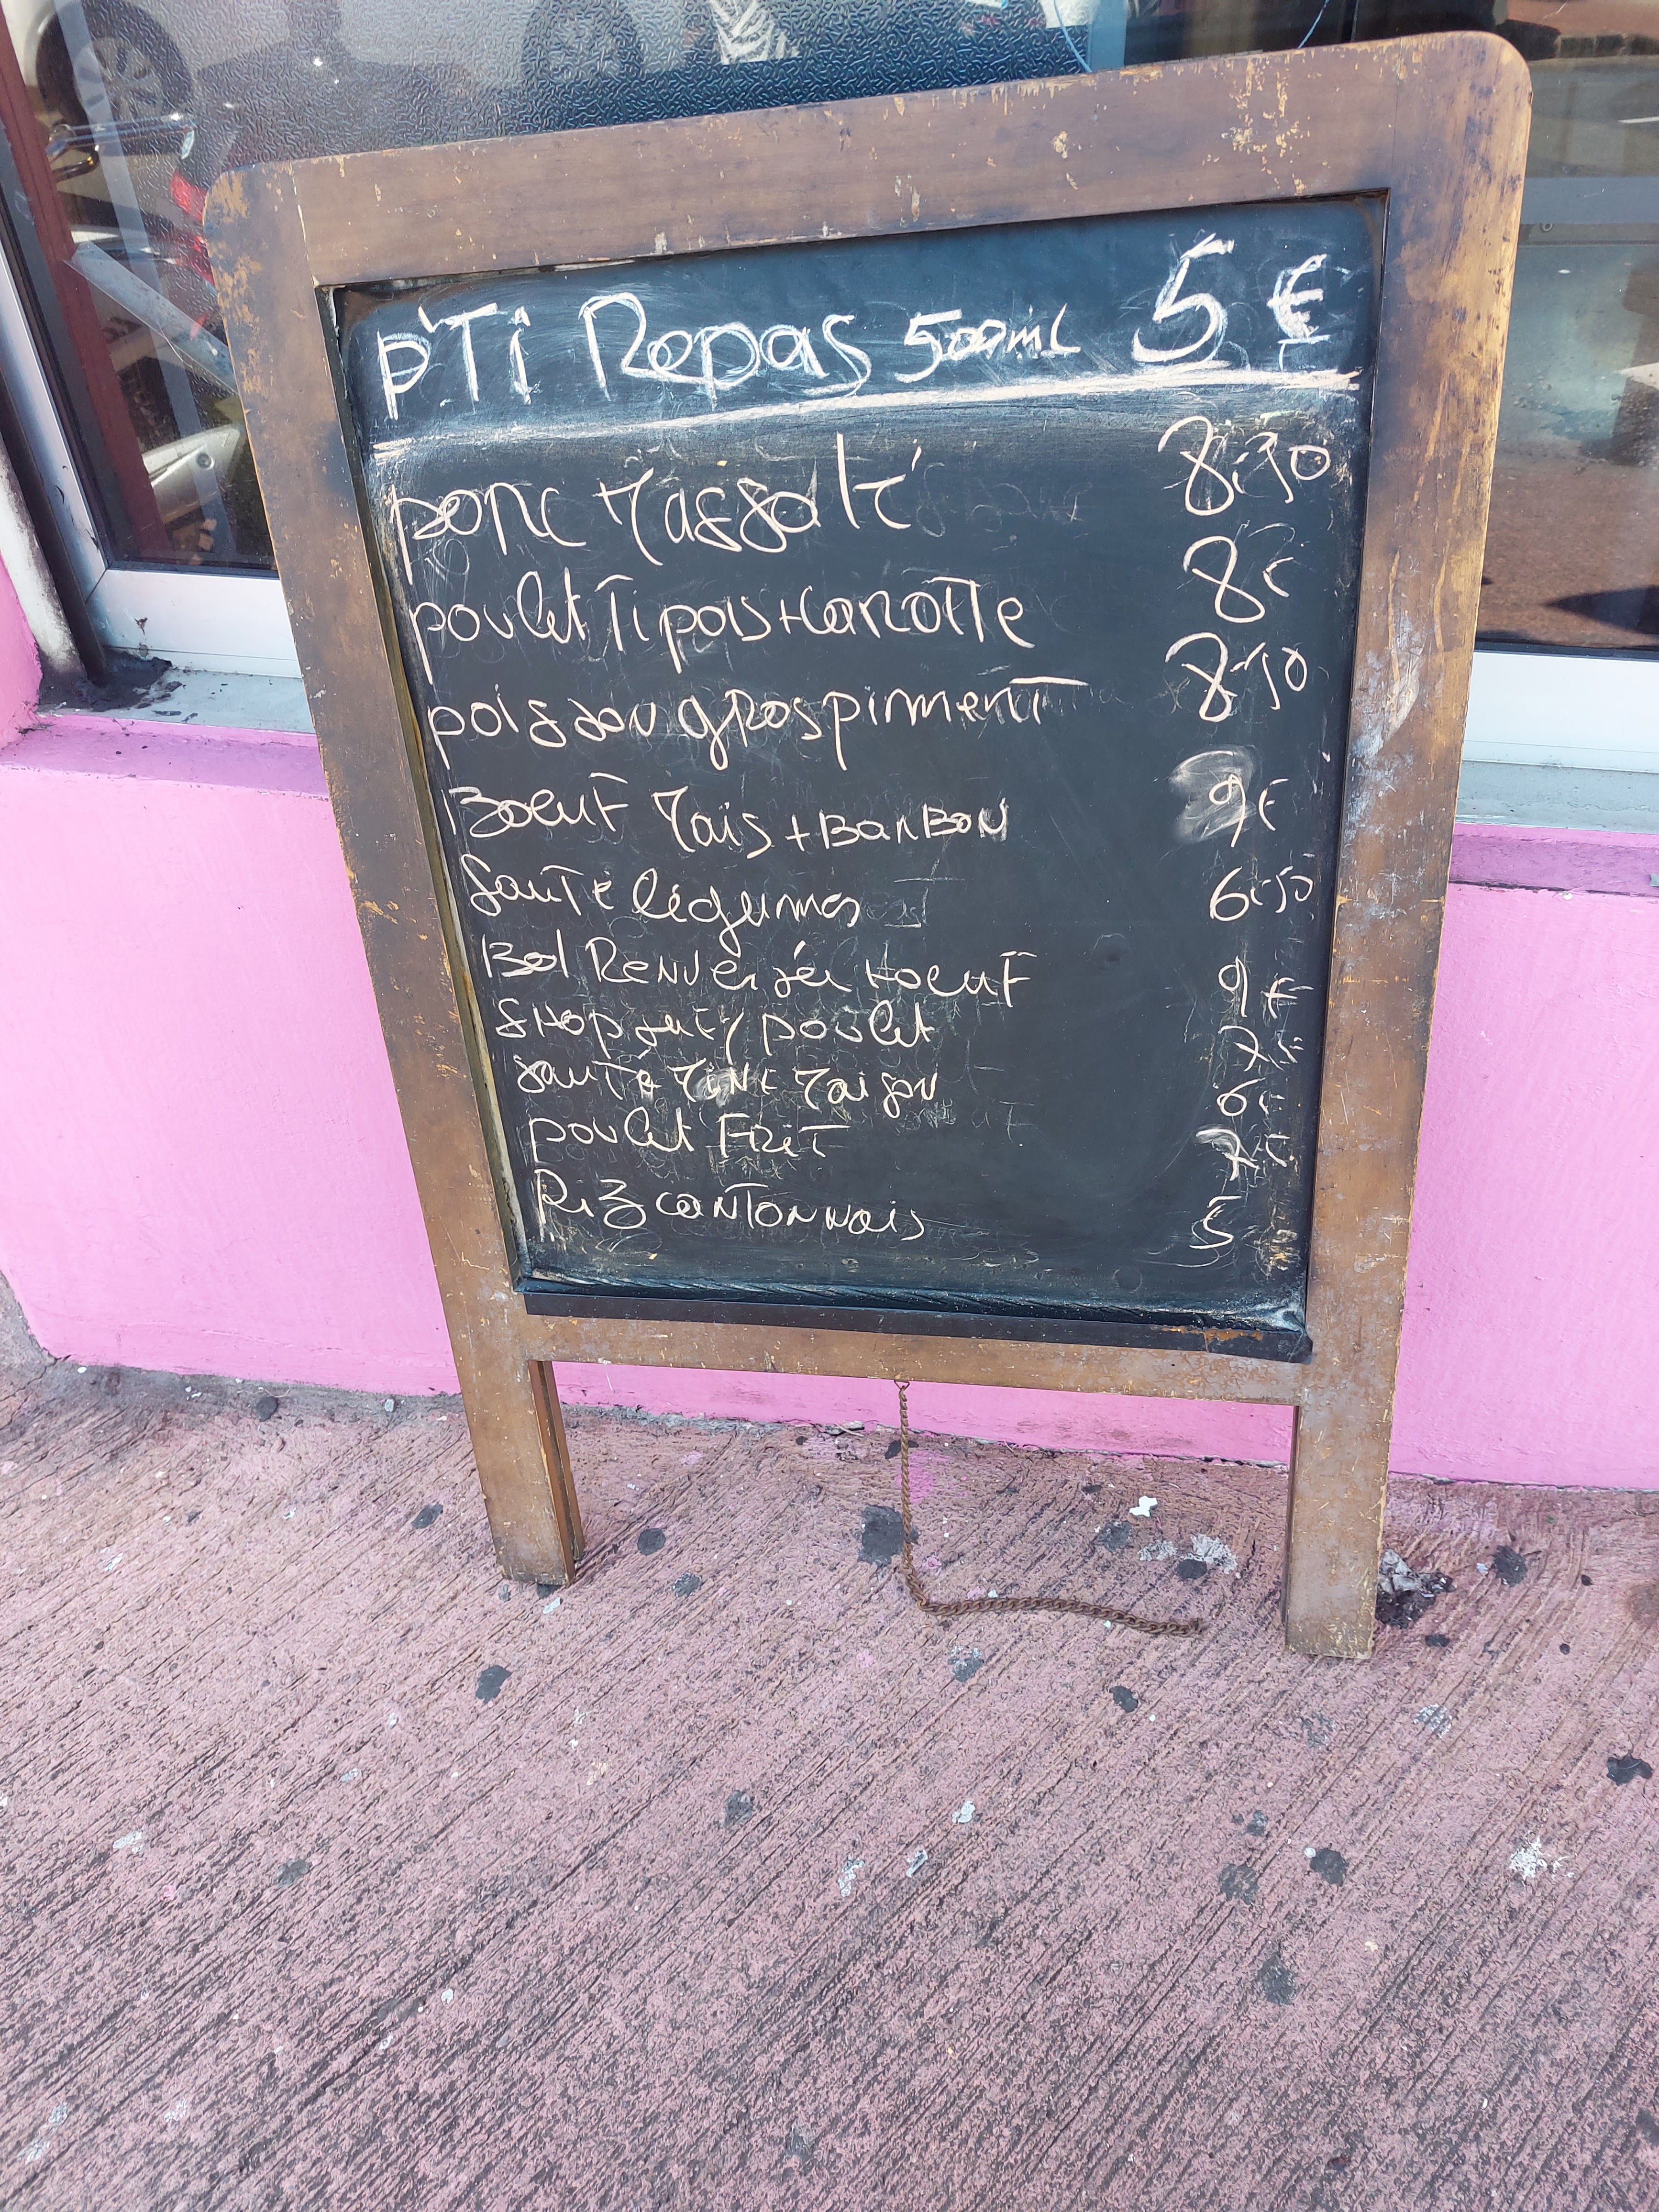 p'Ti Repas 500mL 5 €
porc Massalé 8€50
poulet Ti pois + Carotte 8€
poisson gros piment 8€50
Boeuf Maïs + BamBou 9€
Sauté légumes 6€50
Bol Renversée boeuf 9€
Shop suey poulet 7€
sauté Mine Maison 6€
poulet Frit 7€
Riz cantonnais 5